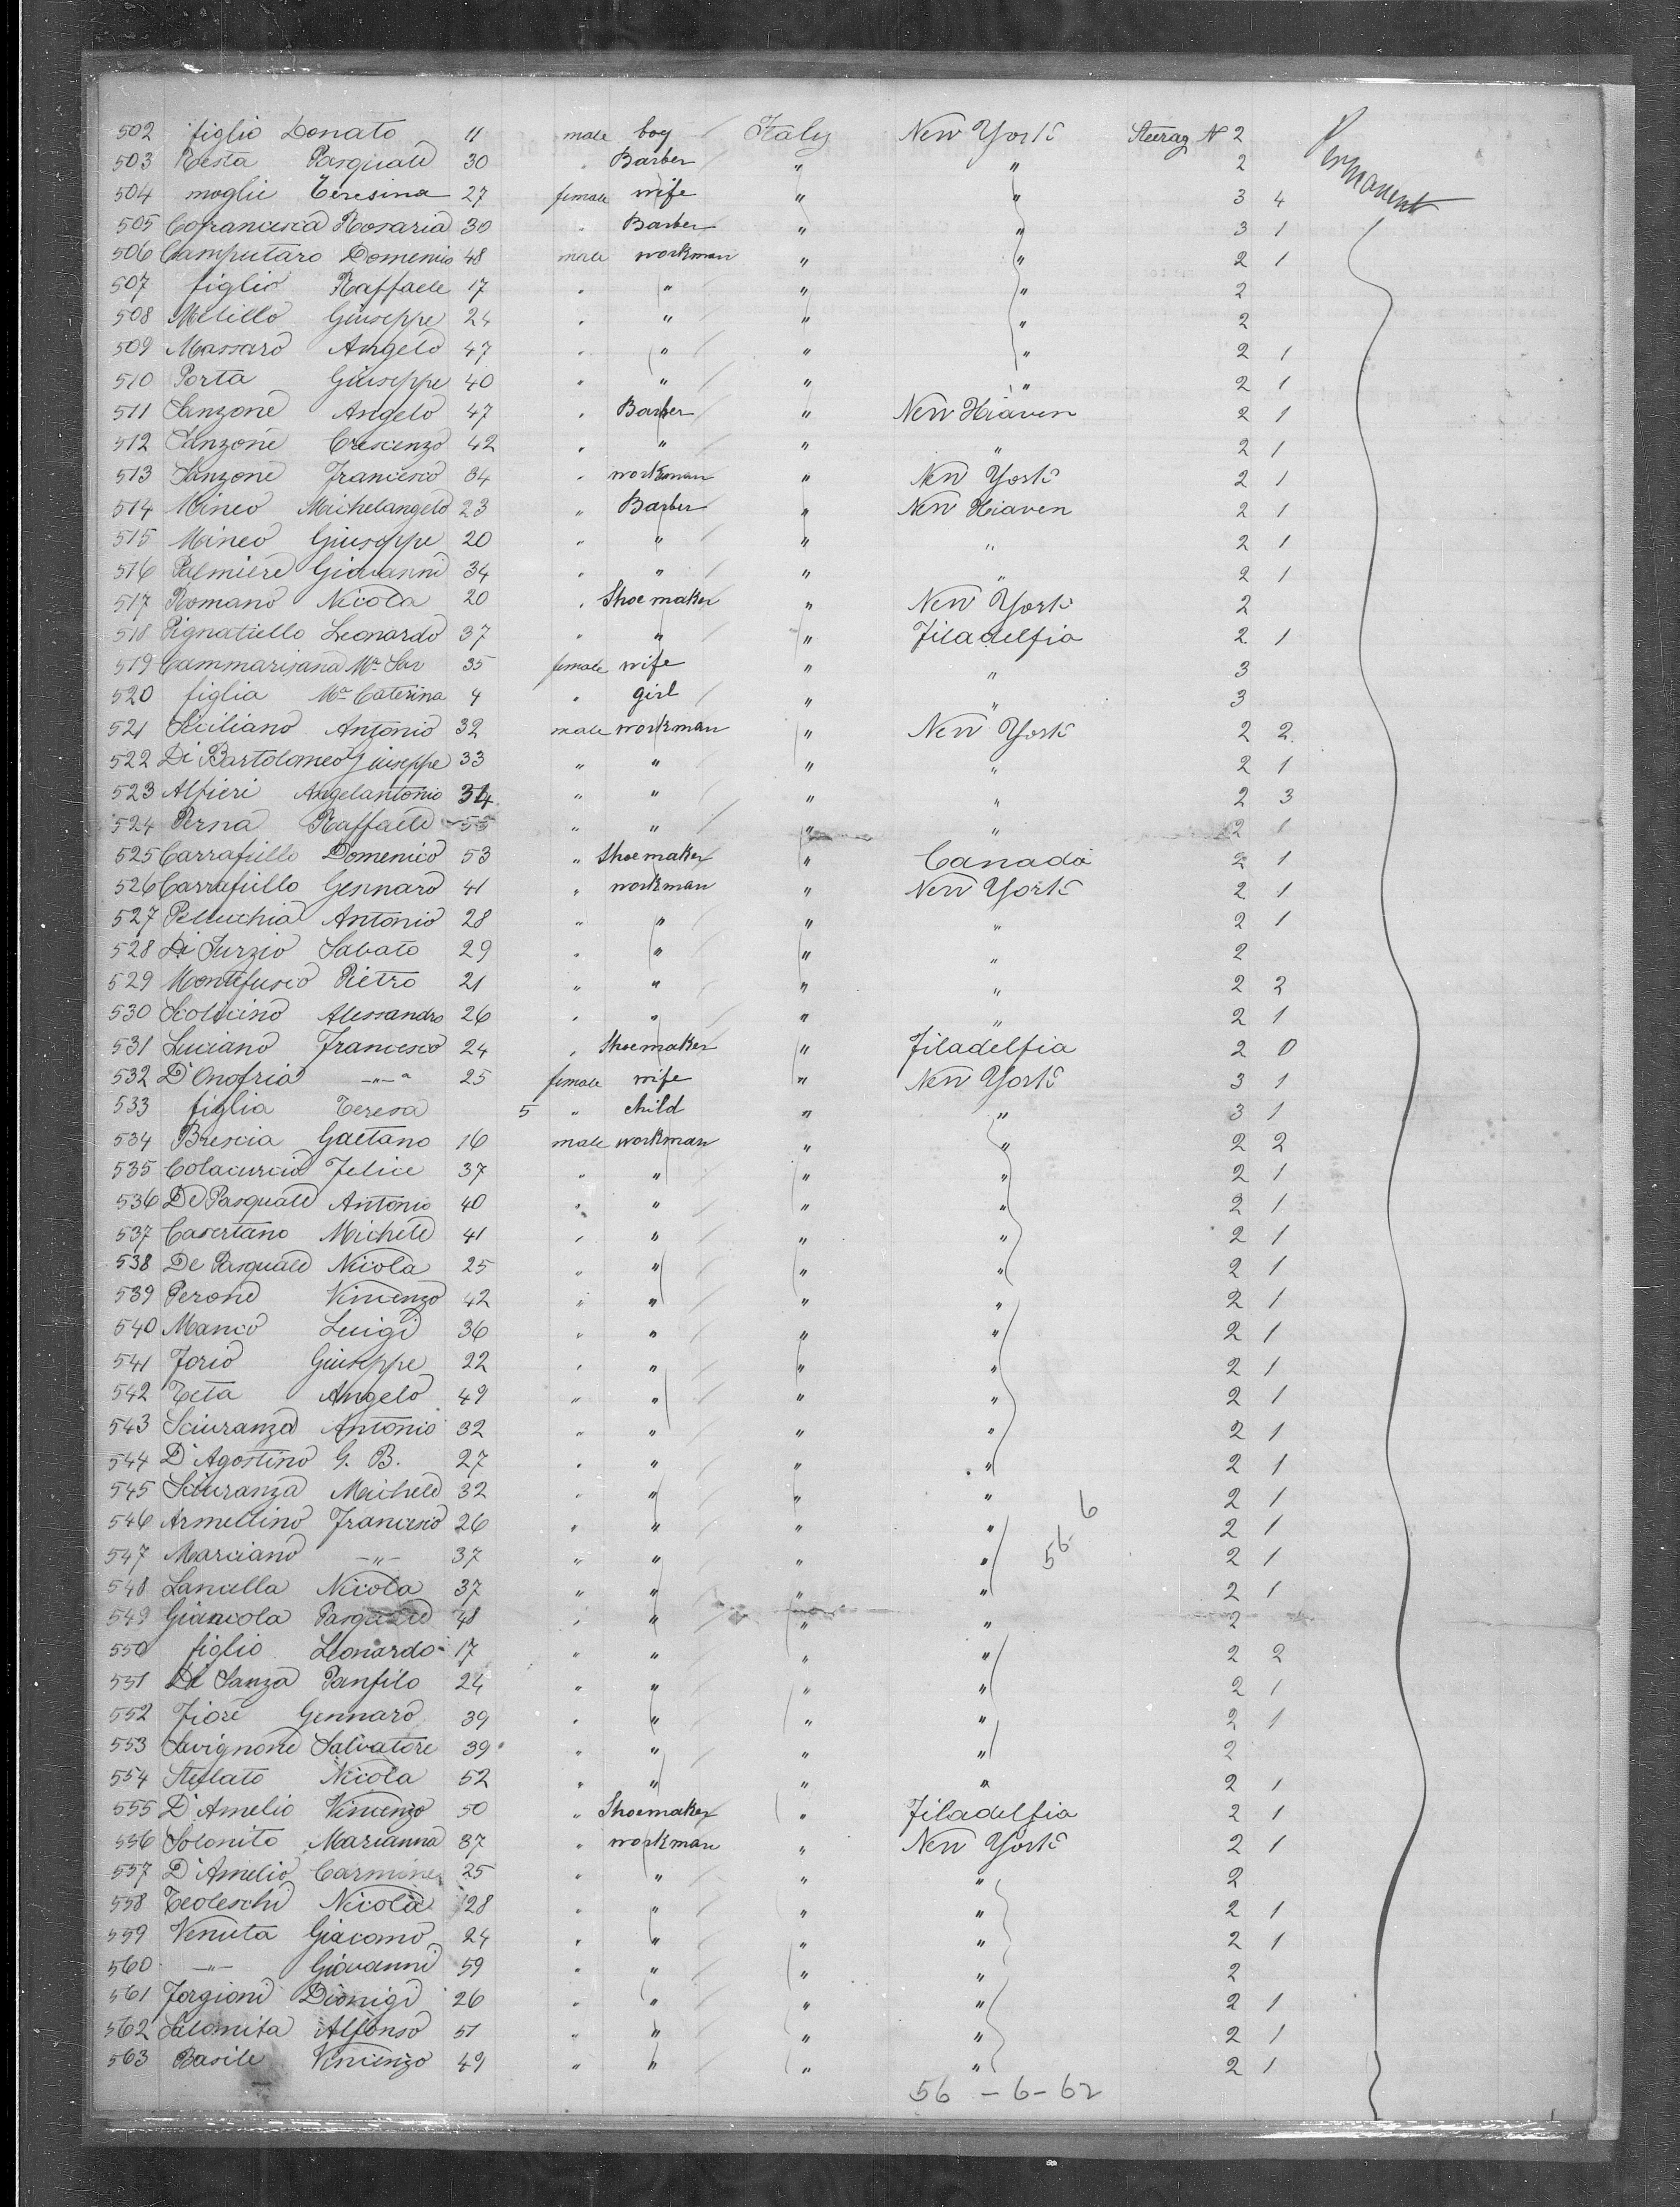 502 figlio Donato 11 male boy Italy New York Steerag N 2 Permanent
503 Testa Pasquale 30 " Barber " " 2
504 moglie Teresina 27 female wife " " 3 4
505 Cofrancesca Rosaria 30 " Barber " " 3 1
506 Camputaro Domenico 48 male workman " " 2 1
507 figlio Raffaele 17 " " " " 2
508 Melillo Giuseppe 24 " " " " 2
509 Massaro Angelo 47 " " " " 2 1
510 Porta Giuseppe 40 " " " " 2 1
511 Sanzone Angelo 47 " Barber " New Heaven 2 1
512 Sanzone Crescenzo 42 " " " " 2 1
513 Sanzone Francesco 34 " workman " New York 2 1
514 Mineo Michelangelo 23 " Barber " New Heaven 2 1
515 Mineo Giuseppe 20 " " " " 2 1
516 Palmiere Giovanni 34 " " " " 2 1
517 Romano Nicola 20 " Shoemaker " New York 2
518 Pignatiello Leonardo 37 " " " Filadelfia 2 1
519 Cammarisana Ma Sav 35 female wife " " 3
520 figlia Ma Caterina 4 " girl " " 3
521 Siciliano Antonio 32 male workman " New York 2 2
522 Di Bartolomeo Giuseppe 33 " " " " 2 1
523 Alfieri Angelantonio 34 " " " " 2 3
524 Perna Raffaele 55 " " " " 2 1
525 Carrafiello Domenico 53 " Shoemaker " Canada 2 1
526 Carrafiello Gennaro 41 " workman " New York 2 1
527 Pelucchia Antonio 28 " " " " 2 1
528 Di Surzio Sabato 29 " " " " 2
529 Montefusco Pietro 21 " " " " 2 2
530 Scolicino Alessandro 26 " " " " 2 1
531 Luciano Francesco 24 " Shoemaker " Filadelfia 2 0
532 D'Onofria -"- a 25 female wife " New York 3 1
533 figlia Teresa 5 " child " " 3 1
534 Brescia Gaetano 16 male workman " " 2 2
535 Colacurcio Felice 37 " " " " 2 1
536 De Pasquale Antonio 40 " " " " 2 1
537 Casertano Michele 41 " " " " 2 1
538 De Pasquale Nicola 25 " " " " 2 1
539 Perone Vincenzo 42 " " " " 2 1
540 Manco Luigi 36 " " " " 2 1
541 Jorio Giuseppe 22 " " " " 2 1
542 Teta Angelo 49 " " " " 2 1
543 Sciuranza Antonio 32 " " " " 2 1
544 D'Agostino G. B. 27 " " " " 2 1
545 Sciuranza Michele 32 " " " " 2 1
546 Armellino Francesco 26 " " " " 56 6 2 1
547 Marciano -"- 37 " " " " 2 1
548 Lancella Nicola 37 " " " " 2 1
549 Giancola Pasquale 48 " " " " 2
550 figlio Leonardo 17 " " " " 2 2
551 Di Sanza Panfilo 24 " " " " 2 1
552 Fiore Gennaro 39 " " " " 2 1
553 Savignone Salvatore 39 " " " " 2
554 Stellato Nicola 52 " " " " 2 1
555 D'Amelio Vincenzo 50 " Shoemaker " Filadelfia 2 1
556 Solonito Marianna 37 " workman " New York 2 1
557 D'Amelio Carmine 25 " " " " 2
558 Tedeschi Nicola 28 " " " " 2 1
559 Venuta Giacomo 24 " " " " 2 1
560 -"- Giovanni 59 " " " " 2
561 Forgioni Dionigi 26 " " " " 2 1
562 Salomita Alfonso 51 " " " " 2 1
563 Basile Vincenzo 49 " " " " 2 1
56 - 6 - 62